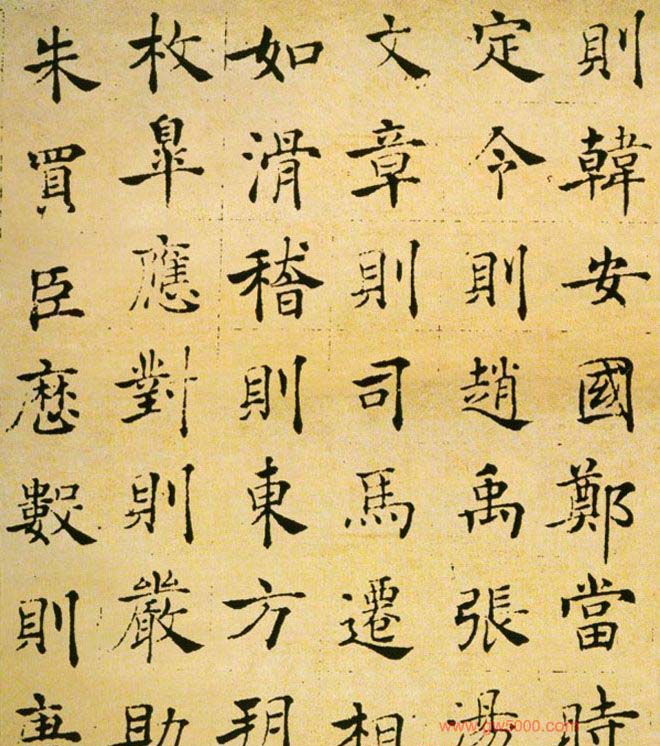 則韓安國鄭當時
定令則趙禹張湯
文章則司馬遷相
如滑稽則東方朔
枚皋應對則嚴助
朱買臣歷數則唐
www.gw5000.com